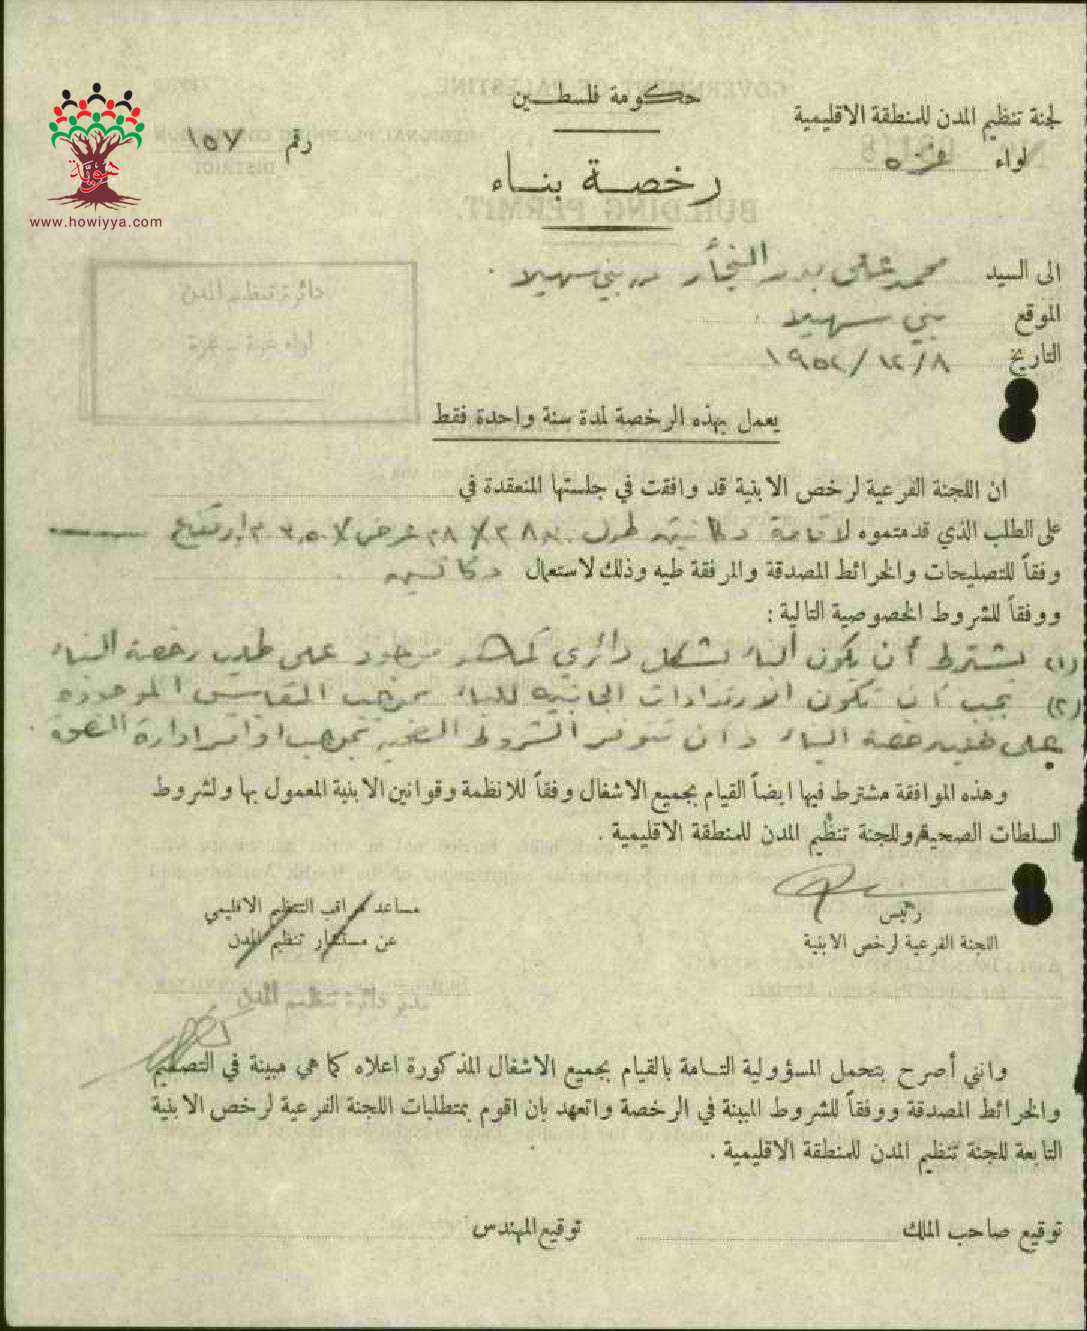 حكومة فلسطين
لجنة تنظيم المدن للمنطقة الاقليمية
لواء غزة
رقم ١٥٧
هوية
www.howiyya.com
رخصة بناء
الى السيد محمد علي بدر النجار من بني سهيلا
الموقع بني سهيلا
التاريخ ١٩٥٢/١٢/٨
دائرة تنظيم المدن
لواء غزة - غزة
يعمل بهذه الرخصة لمدة سنة واحدة فقط
ان اللجنة الفرعية لرخص الابنية قد وافقت في جلستها المنعقدة في
على الطلب الذي قدمتموه لاقامة دكانين طول عرض ارتفاع
وفقاً للتصليحات والخرائط المصدقة والمرفقة طيه وذلك لاستعمال دكاكين
ووفقاً للشروط الخصوصية التالية :
(١) يشترط أن يكون البناء بشكل دائري كما هو موجود على طلب رخصة البناء
(٢) يجب ان تكون الارتدادات الجانبية للبناء بموجب المقاييس الموجودة
على رخصة البناء وان تتوفر الشروط الصحية بموجب اوامر ادارة الصحة .
وهذه الموافقة مشترط فيها ايضاً القيام بجميع الاشغال وفقاً للانظمة وقوانين الابنية المعمول بها ولشروط
السلطات الصحية وللجنة تنظيم المدن للمنطقة الاقليمية .
رئيس
اللجنة الفرعية لرخص الابنية
مساعد مراقب التنظيم الاقليمي
عن مستشار تنظيم المدن
مدير دائرة تنظيم المدن
وانني أصرح بتحمل المسؤولية التامة بالقيام بجميع الاشغال المذكورة اعلاه كما هي مبينة في التصميم
والخرائط المصدقة ووفقاً للشروط المبينة في الرخصة واتعهد بان اقوم بمتطلبات اللجنة الفرعية لرخص الابنية
التابعة للجنة تنظيم المدن للمنطقة الاقليمية .
توقيع صاحب الملك
توقيع المهندس